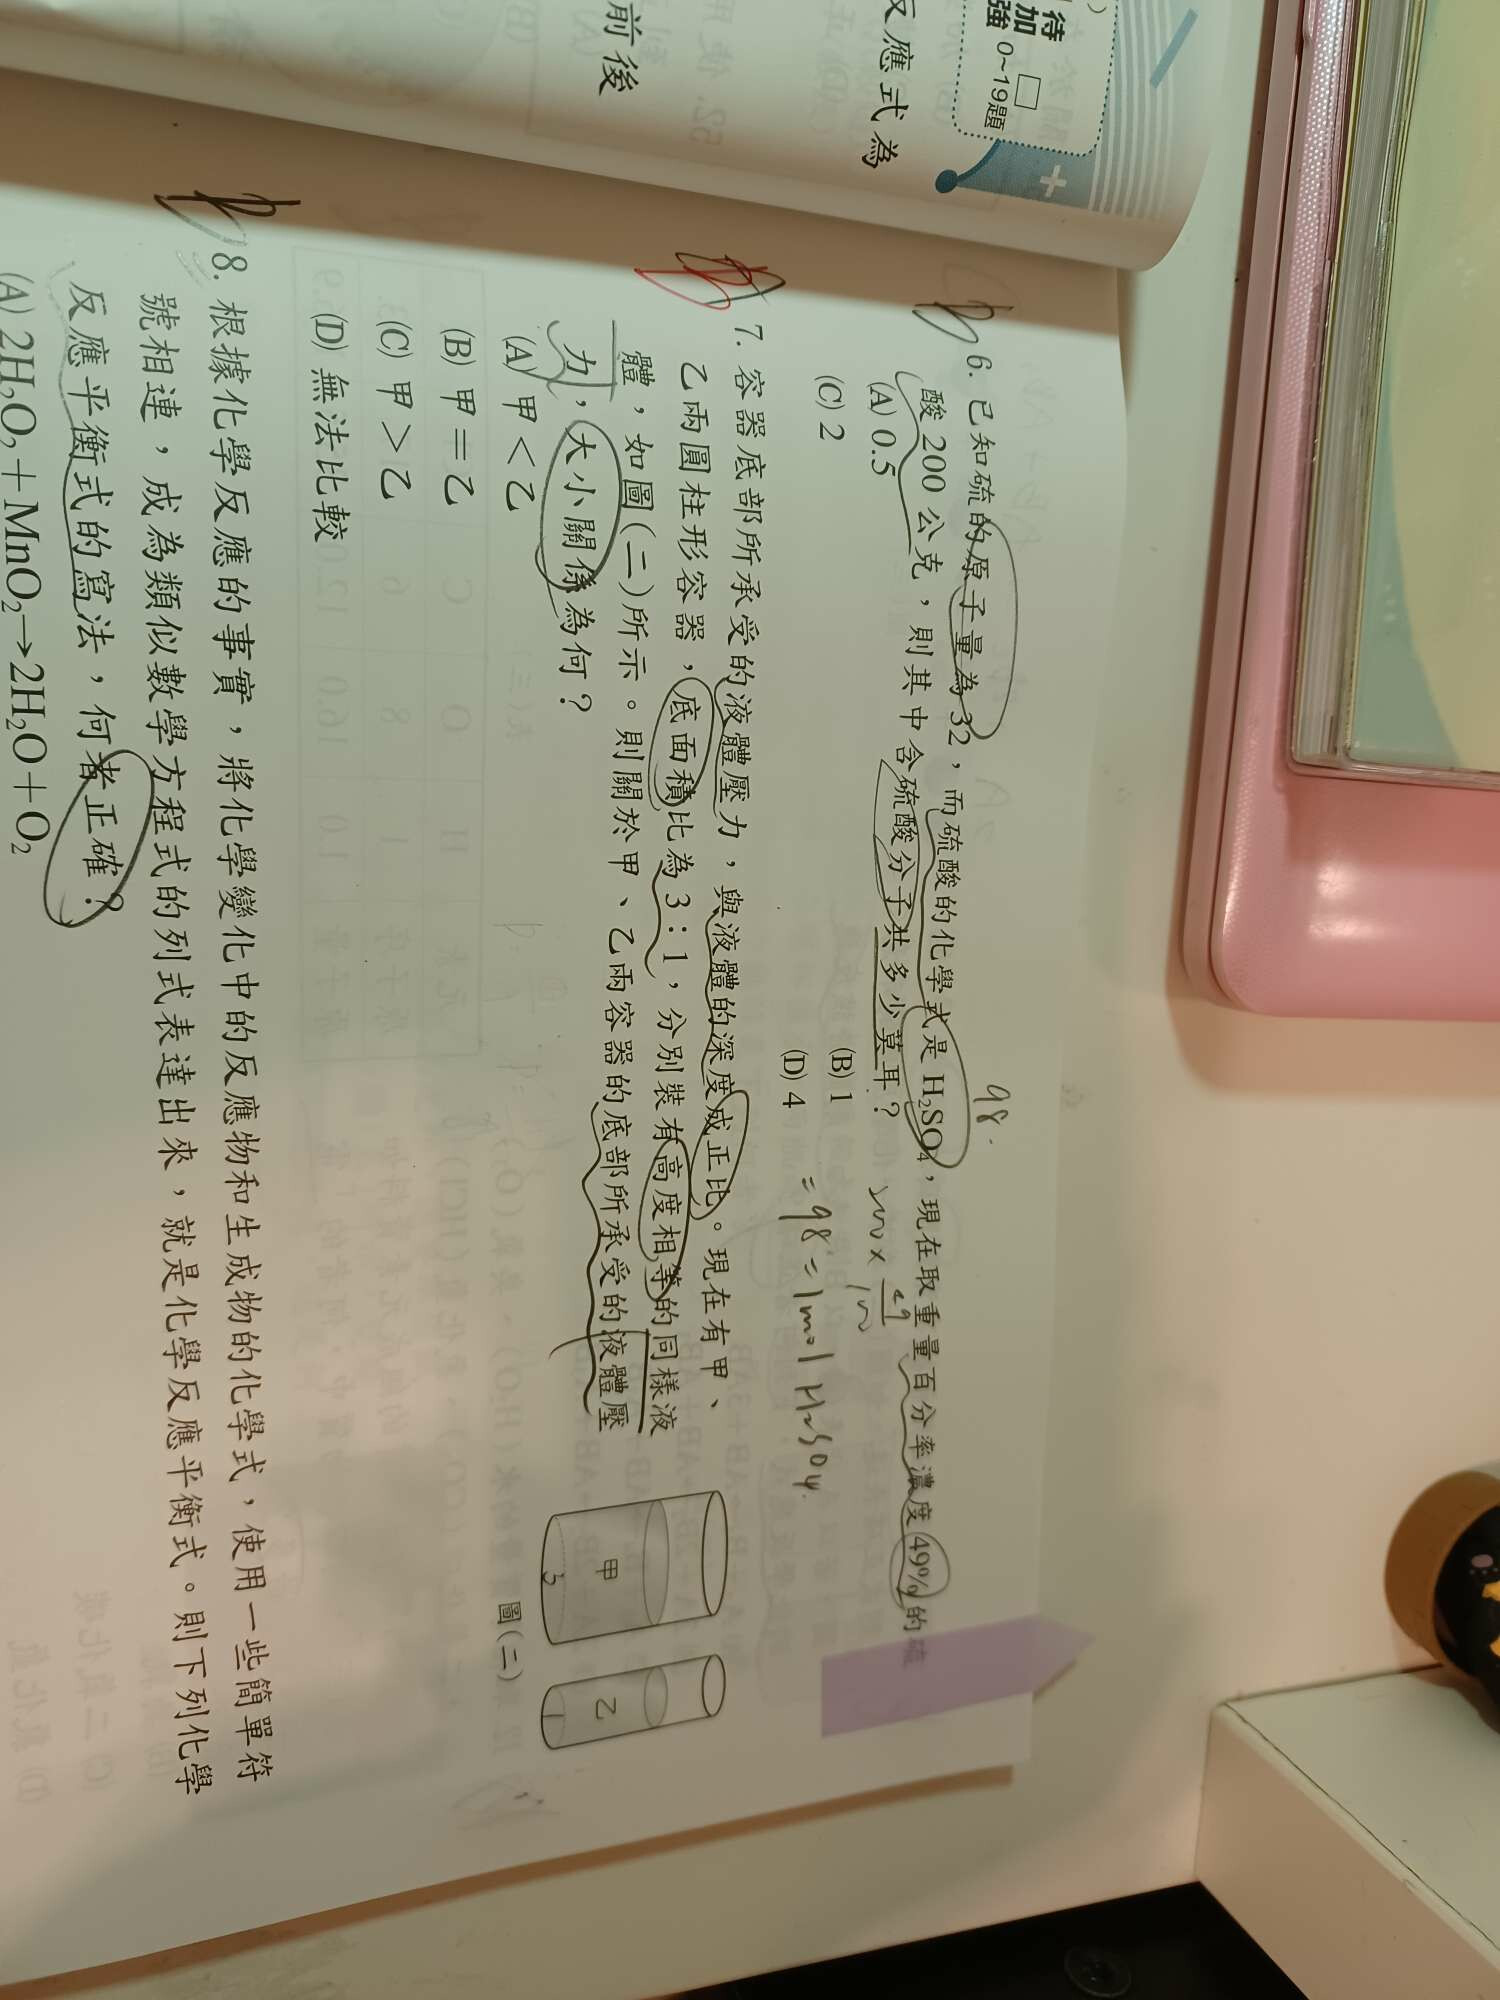 待加強
0~19題
反應式為
前後
6. 已知硫的原子量為32，而硫酸的化學式是H₂SO₄，現在取重量百分率濃度49%的硫
酸200公克，則其中含硫酸分子共多少莫耳？
(A) 0.5
(B) 1
(C) 2
(D) 4
98.
= 98 = 1mol H₂SO₄.
7. 容器底部所承受的液體壓力，與液體的深度成正比。現在有甲、
乙兩圓柱形容器，底面積比為3：1，分別裝有高度相等的同樣液
體，如圖(二)所示。則關於甲、乙兩容器的底部所承受的液體壓
力，大小關係為何？
(A) 甲＜乙
(B) 甲＝乙
(C) 甲＞乙
(D) 無法比較
甲
3
乙
1
圖(二)
8. 根據化學反應的事實，將化學變化中的反應物和生成物的化學式，使用一些簡單符
號相連，成為類似數學方程式的列式表達出來，就是化學反應平衡式。則下列化學
反應平衡式的寫法，何者正確？
(A) 2H₂O₂＋MnO₂→2H₂O＋O₂